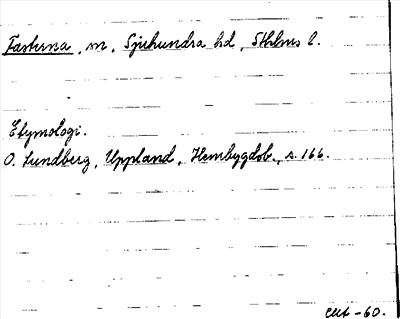 Fasterna, sn, Sjuhundra hd, Sthlms l.
Etymologi.
O. Lundberg, Uppland, Hembygdsb., s. 166.
-60.